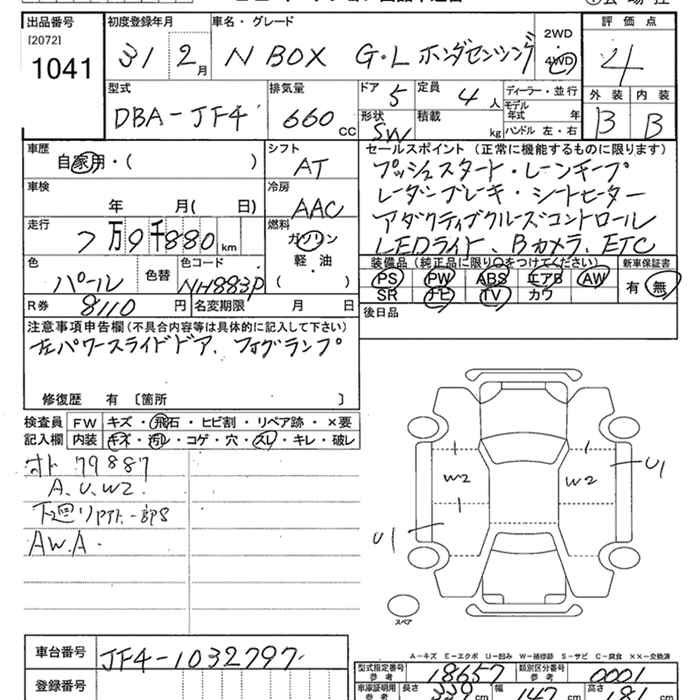 出品番号 初度登録年月 車名・グレード 2WD 評価点
[2072] 31 2月 N BOX G・L ホンダセンシング 4WD 4
1041
型式 排気量 ドア 定員 ディーラー・並行 外装 内装
DBA-JF4 660cc 5 4人 モデル年式 年 B B
形状 積載 ハンドル 左・右
SW kg
車歴 自家用・( ) シフト セールスポイント(正常に機能するものに限ります)
AT プッシュスタート・レーンキープ
車検 冷房 レーダーブレーキ・シートヒーター
年 月( 日) AAC アダクティブクルーズコントロール
走行 7万9千880km 燃料 ガソリン LEDライト、Bカメラ、ETC
色 色替 色コード 軽・油 装備品(純正品に限り○をつけてください) 新車保証書
パール NH883P ( ) PS PW ABS エアB AW 有・無
R券 8110円 名変期限 月 日 SR ナビ TV カワ
注意事項申告欄(不具合内容等は具体的に記入して下さい) 後日品
左パワースライドドア、フォグランプ
修復歴 有 〔箇所 〕
検査員 FW キズ・飛石・ヒビ割・リペア跡・×要
記入欄 内装 キズ・汚レ・コゲ・穴・スレ・キレ・破レ
オド 79887
A.U.W2.
AW.A.
W2 W2 U1
U1
スペア
A-キズ E-エクボ U-凹み W-補修跡 S-サビ C-腐食 ××-交換済
車台番号 JF4-1032797
型式指定番号 参考 18657 類別区分番号 参考 0001
登録番号 車庫証明用 参考 長さ 339cm 幅 147cm 高さ 181cm